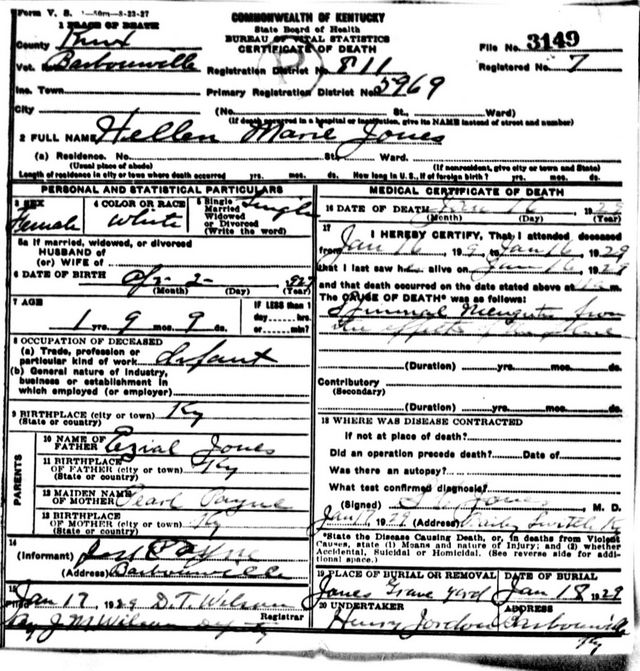 Form V. S. 1-50m-8-23-27
COMMONWEALTH OF KENTUCKY
State Board of Health
BUREAU OF VITAL STATISTICS
CERTIFICATE OF DEATH
1 PLACE OF DEATH
County Knox
File No. 3149
Vot. Barbourville
Registration District No. 811
Registered No. 7
Inc. Town
Primary Registration District No. 5969
City (No. St., Ward)
(If death occurred in a hospital or institution, give its NAME instead of street and number)
2 FULL NAME Hellen Marie Jones
(a) Residence. No. St., Ward.
(Usual place of abode) (If nonresident, give city or town and State)
Length of residence in city or town where death occurred yrs. mos. ds. How long in U. S., if of foreign birth? yrs. mos. ds.
PERSONAL AND STATISTICAL PARTICULARS
3 SEX Female
4 COLOR OR RACE White
5 Single Married Widowed or Divorced (Write the word) Single
5a If married, widowed, or divorced
HUSBAND of
(or) WIFE of
6 DATE OF BIRTH Apr 2 1927
(Month) (Day) (Year)
7 AGE 1 yrs. 9 mos. 9 ds.
IF LESS than 1 day......hrs. or......min?
8 OCCUPATION OF DECEASED
(a) Trade, profession or particular kind of work Infant
(b) General nature of Industry, business or establishment in which employed (or employer)
9 BIRTHPLACE (city or town) Ky
(State or country)
PARENTS
10 NAME OF FATHER Jones
11 BIRTHPLACE OF FATHER (city or town) Ky
(State or country)
12 MAIDEN NAME OF MOTHER Pearl Payne
13 BIRTHPLACE OF MOTHER (city or town) Ky
(State or country)
14
(Informant) Payne
(Address) Barbourville
15
Filed Jan 17, 1929 D.T. Wilson
Registrar
By J M Wilson Deputy
MEDICAL CERTIFICATE OF DEATH
16 DATE OF DEATH Jan 16 1929
(Month) (Day) (Year)
17 I HEREBY CERTIFY, That I attended deceased
from Jan 16, 19 9, to Jan 16, 1929
that I last saw h alive on Jan 16, 1929
and that death occurred on the date stated above at m.
The CAUSE OF DEATH* was as follows:
(Duration) yrs. mos. ds.
Contributory
(Secondary)
(Duration) yrs. mos. ds.
18 WHERE WAS DISEASE CONTRACTED
If not at place of death?
Did an operation precede death? Date of
Was there an autopsy?
What test confirmed diagnosis?
(Signed) Jones, M. D.
Jan 29 (Address) Ky
*State the Disease Causing Death, or, in deaths from Violent Causes, state (1) Means and nature of Injury; and (2) whether Accidental, Suicidal or Homicidal. (See reverse side for additional space.)
19 PLACE OF BURIAL OR REMOVAL Jones Grave yard
DATE OF BURIAL Jan 18 1929
20 UNDERTAKER Henry Jordon
ADDRESS Barbourville Ky